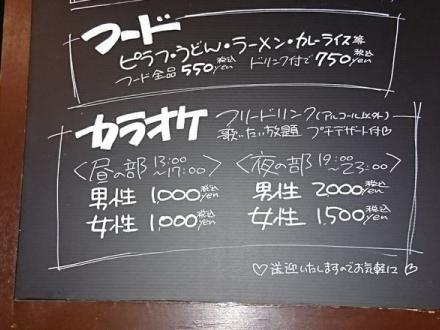 フード
ピラフ・うどん・ラーメン・カレーライス等
フード全品 550yen税込 ドリンク付で750yen税込
カラオケ フリードリンク(アルコール以外)
歌いたい放題 プチデザート付♡
<昼の部 13:00～17:00> <夜の部 19:00～23:00>
男性 1,000yen税込 男性 2,000yen税込
女性 1,000yen税込 女性 1,500yen税込
♡送迎いたしますのでお気軽に♡